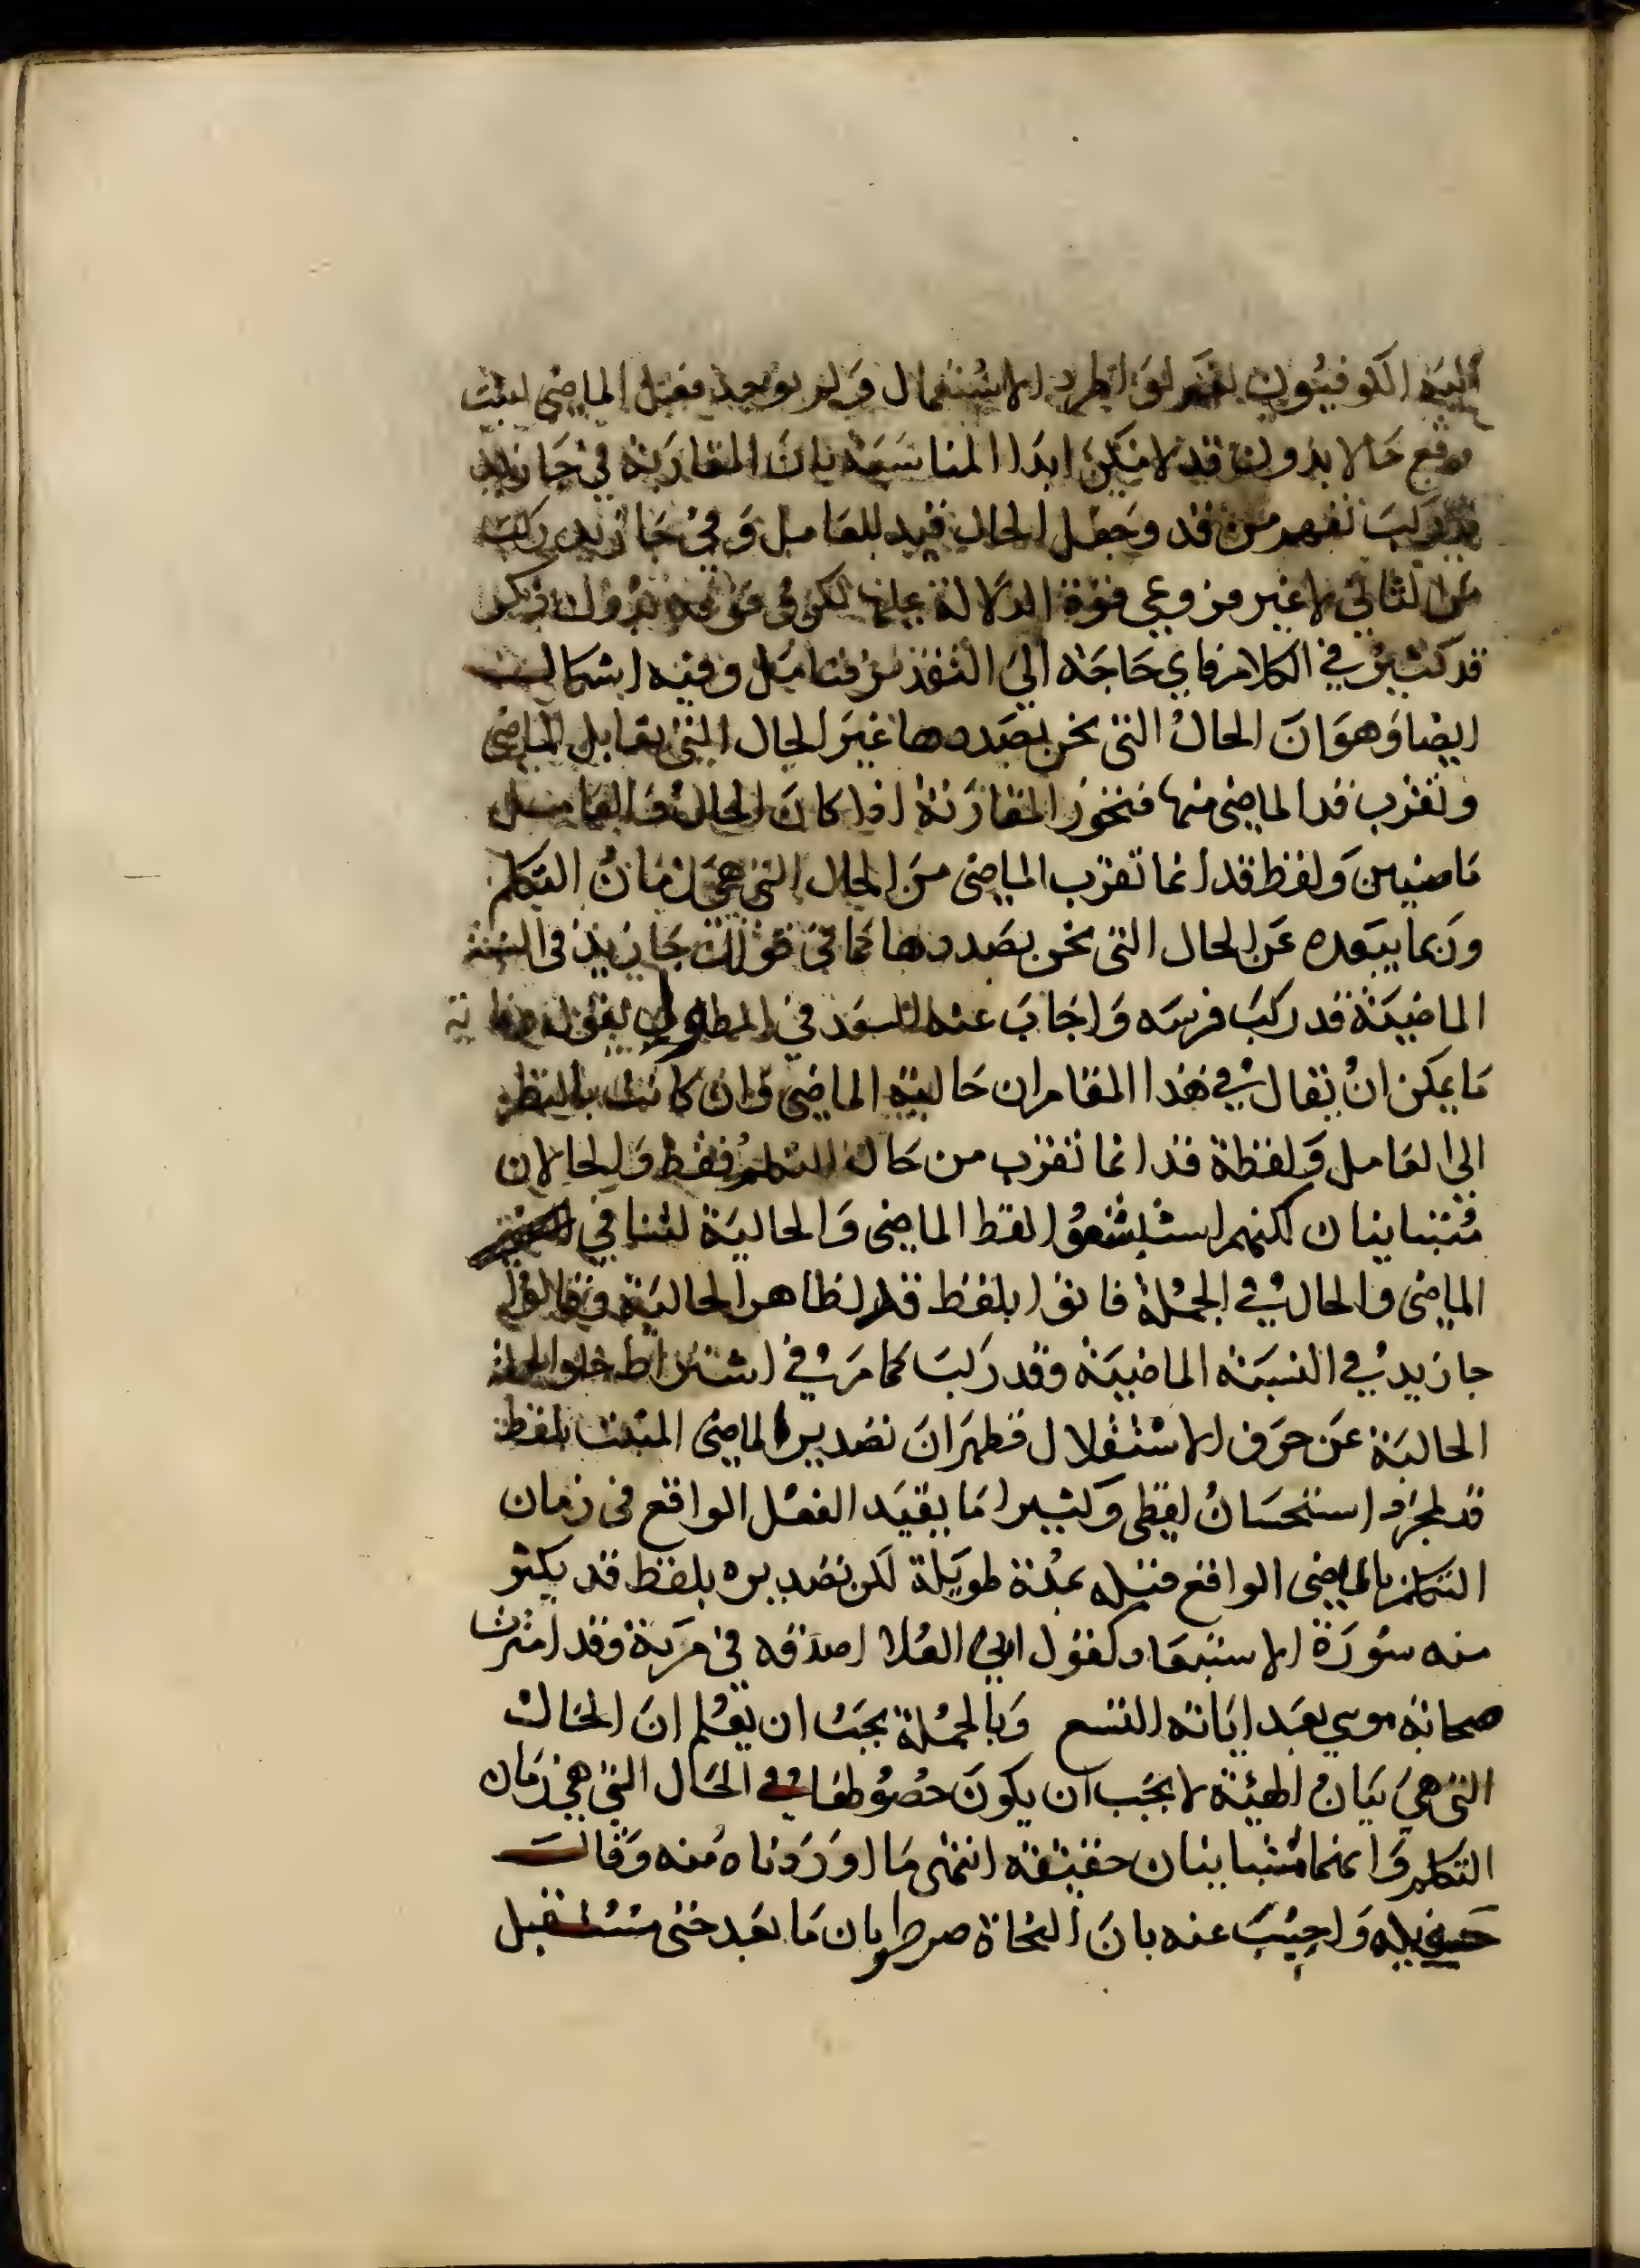 اليه الكوفيون نعم لو اطرد الاستعمال ولم يوجد فعل الماضى لمثبت
وقع حالا بدون قد لامكن ابدا المناسبة بان المقارنة في جا زيد
قد ركب تفهم من قد وجعل الحال قيد للعامل وفي جا زيد ركب
من الثاني لا غير من وعى قوة الدلالة عليها لكن وقوعه بدون ذكر
قد كثير في الكلام فاى حاجة الى التقدير فتامل وفيه اشكال
ايضا وهو ان الحال التى نحن بصددها غير الحال التى يقابل الماضى
وتقرب قد الماضى منها فتجوز المقارنة اذا كان الحال والعامل
ماضيين ولفظ قد انما تقرب الماضى من الحال التى هى زمان التكلم
وربما يبعده عن الحال التى نحن بصددها كما في قولك جا زيد فى السنة
الماضية قد ركب فرسه واجاب عنه السعد في المطول بقوله وغاية
ما يمكن ان يقال في هذا المقام ان حالية الماضى وان كانت بالنظر
الى العامل ولفظة قد انما تقرب من حال التكلم فقط والحالان
متباينان لكنهم استبشعوا لفظ الماضى والحالية لتنافي
الماضى والحال في الجملة فاتوا بلفظ قد لظاهر الحالية وقالوا
جا زيد في السنة الماضية وقد ركب كما مر في اشتراط خلو الجملة
الحالية عن حرف الاستقلال فظهر ان تصدير الماضى المثبت بلفظ
قد لمجرد استحسان لفظى وكثيرا ما يقيد الفعل الواقع فى زمان
التكلم بالماضى الواقع قبله بمدة طويلة لكن تصديره بلفظ قد يكثر
منه سورة الاستبعاد كقول ابى العلا اصدقه في مرية وقد امترت
صحابة موسى بعد اياته التسع وبالجملة يجب ان يعلم ان الحال
التى هي بيان الهيئة لا يجب ان يكون حصولها في الحال التي هي زمان
التكلم وانهما متباينان حقيقة انتهى ما اوردناه منه وقال
واجيب عنه بان النحاة صرحوا بان ما بعد حتى مستقبل